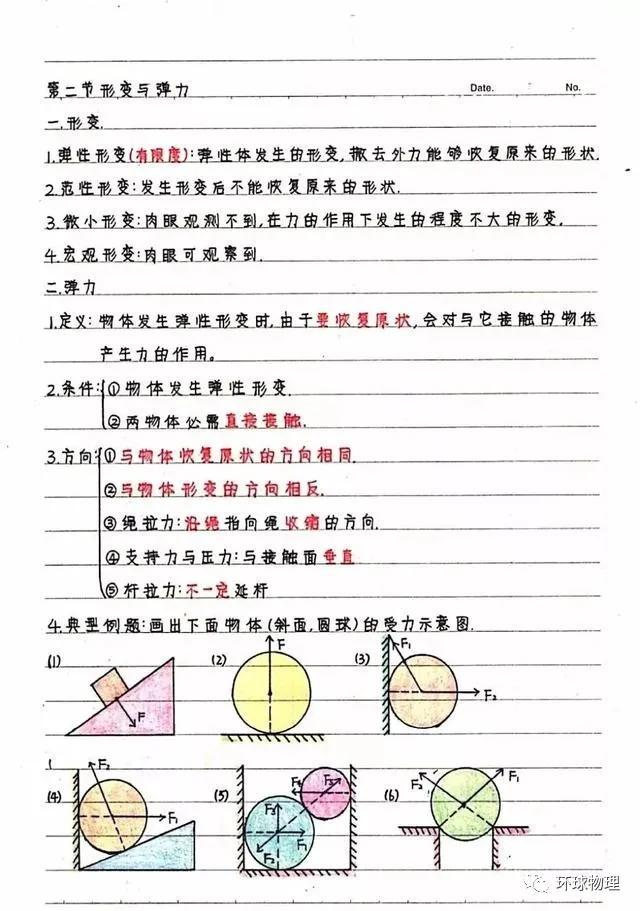 第二节形变与弹力 Date. No.
一.形变.
1.弹性形变(有限度):弹性体发生的形变,撤去外力能够恢复原来的形状.
2.范性形变:发生形变后不能恢复原来的形状.
3.微小形变:肉眼观测不到,在力的作用下发生的程度不大的形变.
4.宏观形变:肉眼可观察到.
二.弹力
1.定义:物体发生弹性形变时,由于要恢复原状,会对与它接触的物体
产生力的作用。
2.条件:①物体发生弹性形变.
②两物体必需直接接触.
3.方向:①与物体恢复原状的方向相同.
②与物体形变的方向相反.
③绳拉力:沿绳指向绳收缩的方向.
④支持力与压力:与接触面垂直
⑤杆拉力:不一定延杆
4.典型例题:画出下面物体(斜面,圆球)的受力示意图.
(1) F (2) F (3) F₁ F₂
(4) F₂ F₁ (5) F₄ F₅ F₃ F₁ F₂ (6) F₂ F₁
环球物理